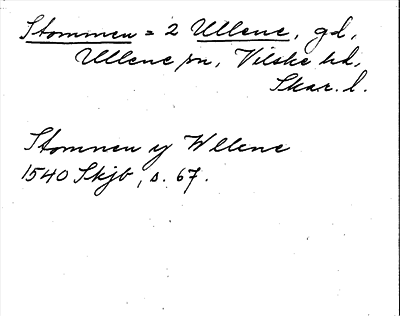 Stommen = 2 Ullene, gd,
Ullene sn, Vilske hd,
Skar. l.
Stommen y Wllene
1540 Skjb, s. 67.